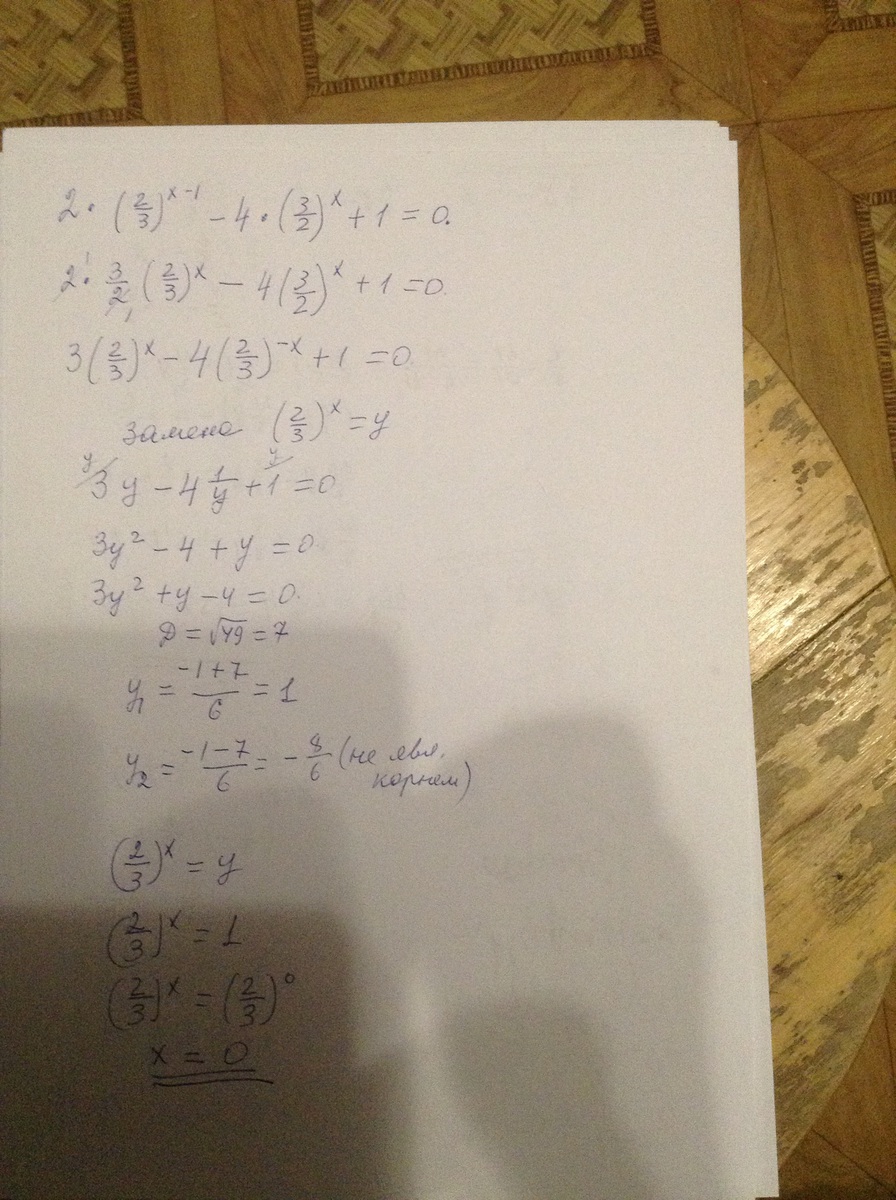 2 · (2/3)^(x-1) - 4 · (3/2)^x + 1 = 0.
2 · 3/2 (2/3)^x - 4 (3/2)^x + 1 = 0.
3 (2/3)^x - 4 (2/3)^(-x) + 1 = 0
замена (2/3)^x = y
y y
3y - 4 1/y + 1 = 0
3y² - 4 + y = 0.
3y² + y - 4 = 0.
D = √49 = 7
y₁ = (-1+7)/6 = 1
y₂ = (-1-7)/6 = - 8/6 (не явл. корнем)
(2/3)^x = y
(2/3)^x = 1
(2/3)^x = (2/3)^0
x = 0